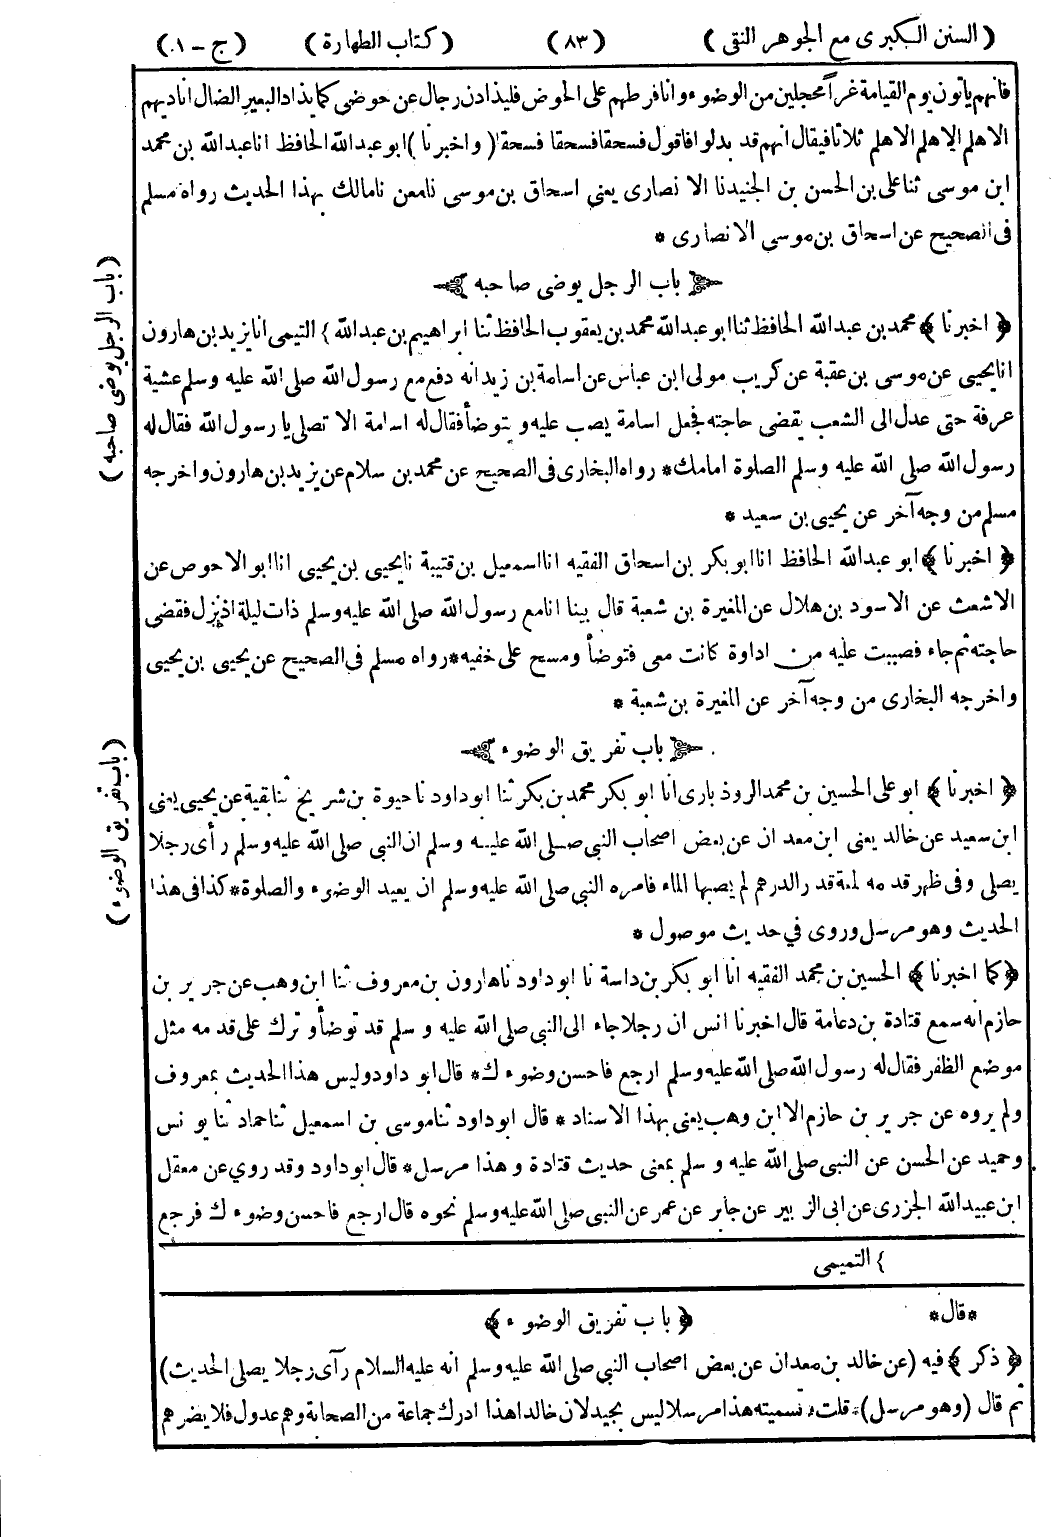 ( السنن الكبرى مع الجوهر النقى ) ( ٨٣ ) ( كتاب الطهارة ) ( ج – ١٠ )
فانهم يأتون يوم القيامة غراً محجلين من الوضوء وانا فرطهم على الحوض فليذادن رجال عن حوضى كما يذاد البعير الضال اناديهم
الاهلم الاهلم الاهلم ثلاثا فيقال انهم قد بدلوا فاقول فسحقا فسحقا فسحقا ( واخبرنا ) ابو عبدالله الحافظ انا عبدالله بن محمد
ابن موسى ثنا على بن الحسن بن الجنيد نا الانصارى يعنى اسحاق بن موسى نا معن نا مالك بهذا الحديث رواه مسلم
فى الصحيح عن اسحاق بن موسى الانصارى *
باب الرجل يوضى صاحبه
﴿ اخبرنا ﴾ محمد بن عبدالله الحافظ ثنا ابو عبدالله محمد بن يعقوب الحافظ ثنا ابراهيم بن عبدالله } التيمى انا يزيد بن هارون
انا يحيى عن موسى بن عقبة عن كريب مولى ابن عباس عن اسامة بن زيد انه دفع مع رسول الله صلى الله عليه وسلم عشية
عرفة حتى عدل الى الشعب يقضى حاجته فجعل اسامة يصب عليه ويتوضأ فقال له اسامة الا تصلى يا رسول الله فقال له
رسول الله صلى الله عليه وسلم الصلوة امامك* رواه البخارى فى الصحيح عن محمد بن سلام عن يزيد بن هارون واخرجه
مسلم من وجه آخر عن يحيى بن سعيد *
﴿ اخبرنا ﴾ ابو عبدالله الحافظ انا ابو بكر بن اسحاق الفقيه انا اسمعيل بن قتيبة نا يحيى بن يحيى انا ابو الاحوص عن
الاشعث عن الاسود بن هلال عن المغيرة بن شعبة قال بينا انا مع رسول الله صلى الله عليه وسلم ذات ليلة اذ نزل فقضى
حاجته ثم جاء فصببت عليه من اداوة كانت معى فتوضأ ومسح على خفيه* رواه مسلم فى الصحيح عن يحيى بن يحيى
واخرجه البخارى من وجه آخر عن المغيرة بن شعبة *
باب تفريق الوضوء
﴿ اخبرنا ﴾ ابو على الحسين بن محمد الروذبارى انا ابو بكر محمد بن بكر ثنا ابو داود نا حيوة بن شريح ثنا بقية عن يحيى يعنى
ابن سعيد عن خالد يعنى ابن معدان عن بعض اصحاب النبى صلى الله عليه وسلم ان النبى صلى الله عليه وسلم رأى رجلا
يصلى وفى ظهر قدمه لمعة قدر الدرهم لم يصبها الماء فامره النبى صلى الله عليه وسلم ان يعيد الوضوء والصلوة* كذا فى هذا
الحديث وهو مرسل وروى في حديث موصول *
﴿ كما اخبرنا ﴾ الحسين بن محمد الفقيه انا ابو بكر بن داسة نا ابو داود نا هارون بن معروف ثنا ابن وهب عن جرير بن
حازم انه سمع قتادة بن دعامة قال اخبرنا انس ان رجلا جاء الى النبى صلى الله عليه وسلم قد توضأ وترك على قدمه مثل
موضع الظفر فقال له رسول الله صلى الله عليه وسلم ارجع فاحسن وضوءك* قال ابو داود وليس هذا الحديث بمعروف
ولم يروه عن جرير بن حازم الا ابن وهب يعنى بهذا الاسناد * قال ابو داود ثنا موسى بن اسمعيل ثنا حماد ثنا يونس
وحميد عن الحسن عن النبى صلى الله عليه وسلم بمعنى حديث قتادة وهذا مرسل* قال ابو داود وقد روي عن معقل
ابن عبيد الله الجزرى عن ابى الزبير عن جابر عن عمر عن النبى صلى الله عليه وسلم نحوه قال ارجع فاحسن وضوءك فرجع
} التميمى
*قال*
﴿ باب تفريق الوضوء ﴾
﴿ ذكر ﴾ فيه ( عن خالد بن معدان عن بعض اصحاب النبى صلى الله عليه وسلم انه عليه السلام رآى رجلا يصلى الحديث )
ثم قال ( وهو مرسل )* قلت* تسميته هذا مرسلا ليس بجيد لان خالدا هذا ادرك جماعة من الصحابة وهم عدول فلا يضرهم
( باب الرجل يوضى صاحبه )
( باب تفريق الوضوء )